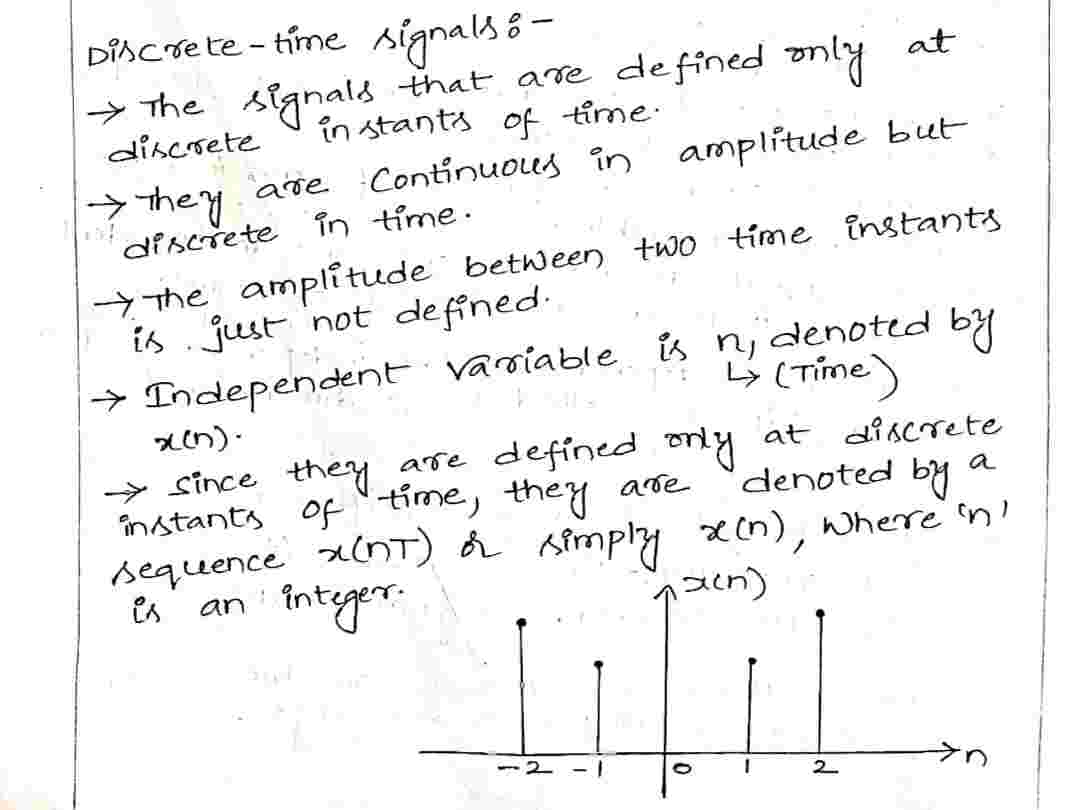 Discrete-time signals :-
→ The signals that are defined only at
discrete instants of time.
→ They are continuous in amplitude but
discrete in time.
→ The amplitude between two time instants
is just not defined.
→ Independent variable is n, denoted by
↳ (Time)
x(n).
→ since they are defined only at discrete
instants of time, they are denoted by a
sequence x(nT) or simply x(n), where 'n'
is an integer.
x(n)
-2 -1 0 1 2
n